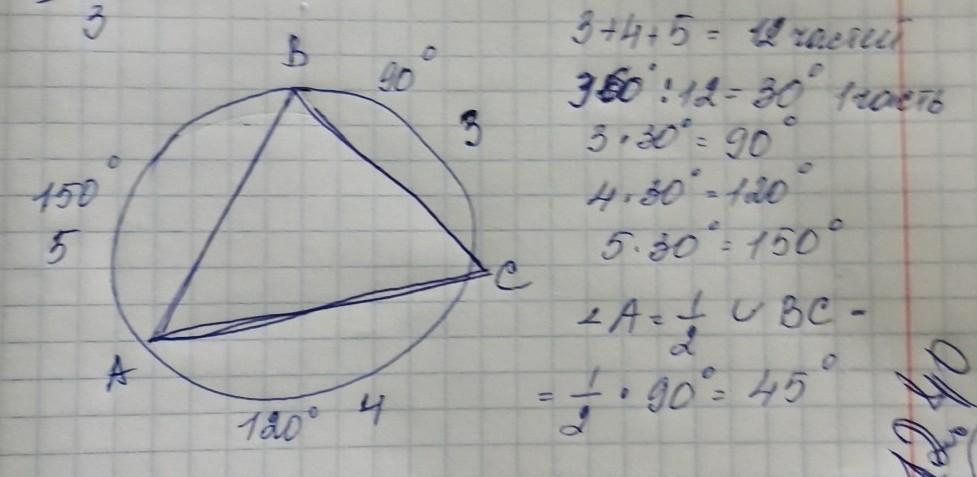 3
B
90°
3
150°
5
C
A
120° 4
3+4+5 = 12 частей
360° : 12 = 30° 1 часть
3·30° = 90°
4·30° = 120°
5·30° = 150°
∠A = 1/2 ◡ BC =
= 1/2 · 90° = 45°